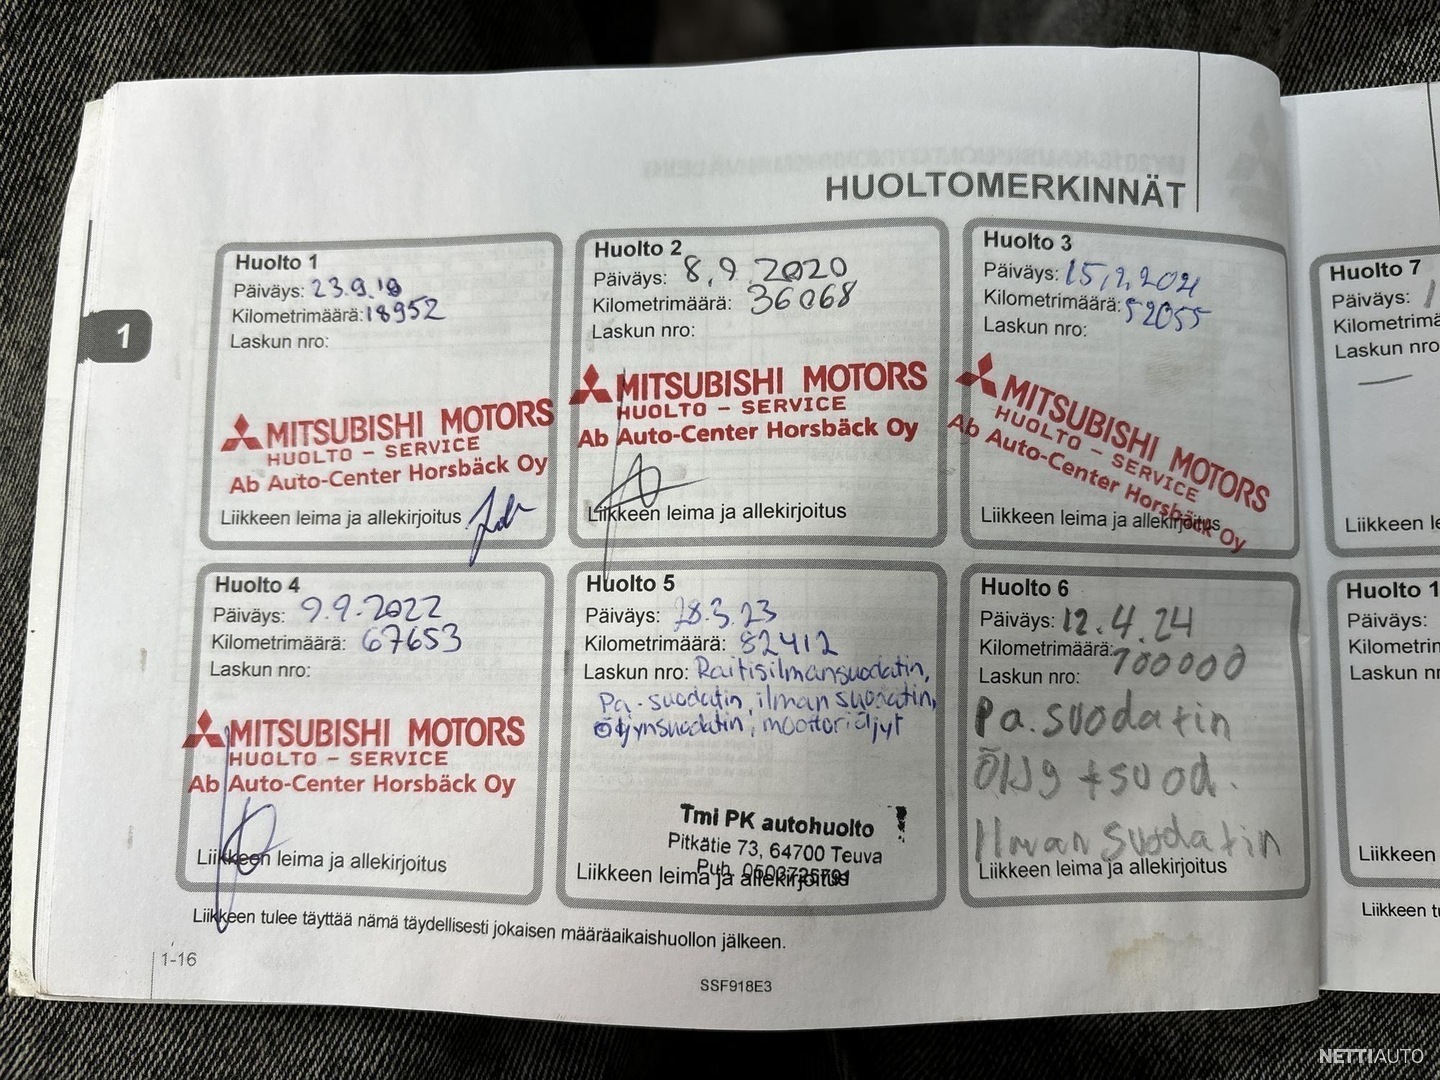 HUOLTOMERKINNÄT
1
Huolto 1
Päiväys: 23.9.19
Kilometrimäärä: 18952
Laskun nro:
MITSUBISHI MOTORS
HUOLTO - SERVICE
Ab Auto-Center Horsbäck Oy
Liikkeen leima ja allekirjoitus
Huolto 2
Päiväys: 8.9.2020
Kilometrimäärä: 36068
Laskun nro:
MITSUBISHI MOTORS
HUOLTO - SERVICE
Ab Auto-Center Horsbäck Oy
Liikkeen leima ja allekirjoitus
Huolto 3
Päiväys:
Kilometrimäärä: 52055
Laskun nro:
MITSUBISHI MOTORS
HUOLTO - SERVICE
Ab Auto-Center Horsbäck Oy
Liikkeen leima ja allekirjoitus
Huolto 7
Päiväys:
Laskun nro
Liikkeen
Huolto 4
Päiväys: 9.9.2022
Kilometrimäärä: 67653
Laskun nro:
MITSUBISHI MOTORS
HUOLTO - SERVICE
Ab Auto-Center Horsbäck Oy
Liikkeen leima ja allekirjoitus
Huolto 5
Päiväys: 28.3.23
Kilometrimäärä: 82412
Laskun nro: Raitisilmansuodatin,
Pa-suodatin, ilman suodatin,
öljynsuodatin, moottoriöljyt
Tmi PK autohuolto
Pitkätie 73, 64700 Teuva
Puh.
Liikkeen leima ja allekirjoitus
Huolto 6
Päiväys: 12.4.24
Kilometrimäärä: 100000
Laskun nro:
Pa.suodatin
Öljy + suod.
Ilman suodatin
Liikkeen leima ja allekirjoitus
Huolto 1
Päiväys:
Laskun
Liikkeen
Liikkeen tulee täyttää nämä täydellisesti jokaisen määräaikaishuollon jälkeen.
Liikkeen
1-16
SSF918E3
NETTIAUTO